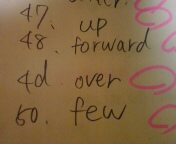 47. up
48. forward
4d. over
50. few